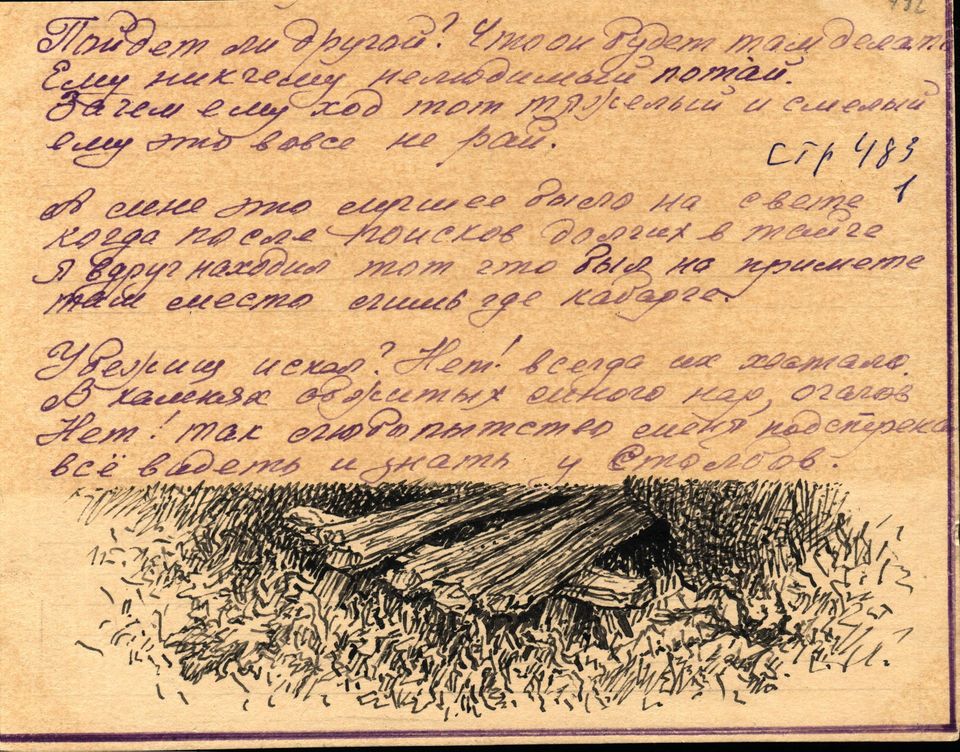 Пойдет ли другой? Что он будет там делать
Ему никчему нелюдимый потай.
Зачем ему ход тот тяжелый и смелый
ему это вовсе не рай.
стр 483
1
А мне это лучшее было на свете
когда после поисков долгих в тайге
я вдруг находил тот что был на примете
там место лишь где кабарге.
Убежищ искал? Нет! всегда их хватало.
В камнях обжитых много нар, очагов
Нет! так любопытство меня подстрекало
всё видеть и знать у Столбов.